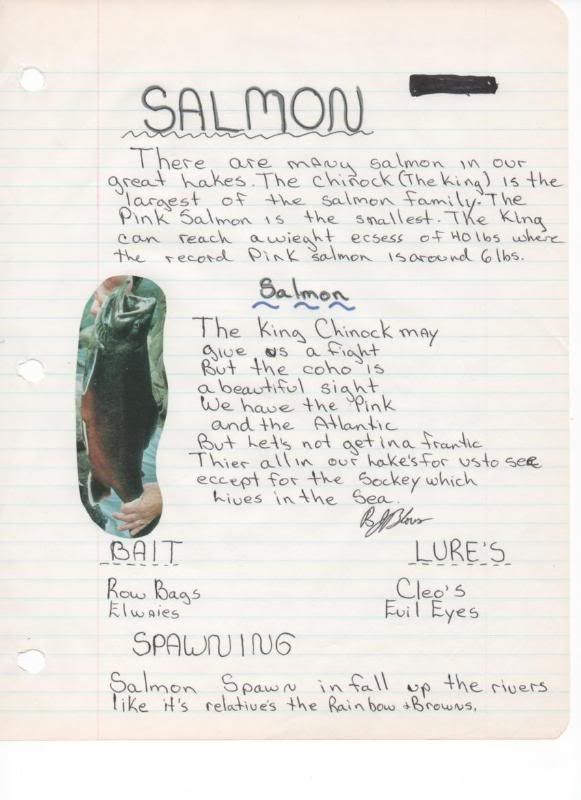 SALMON
There are many salmon in our
great Lakes. The chinock (The king) is the
largest of the salmon family. The
Pink Salmon is the smallest. The King
can reach a wieght ecsess of 40 lbs where
the record Pink salmon is around 6 lbs.
Salmon
The King Chinock may
give us a fight
But the coho is
a beautiful sight
We have the Pink
and the Atlantic
But Let's not get in a frantic
Thier all in our Lake's for us to see
eccept for the Sockey which
Lives in the Sea.
BAIT
LURE'S
Row Bags
Cleo's
Elwaies
Evil Eyes
SPAWNING
Salmon Spawn in fall up the rivers
like it's relative's the Rainbow & Browns.